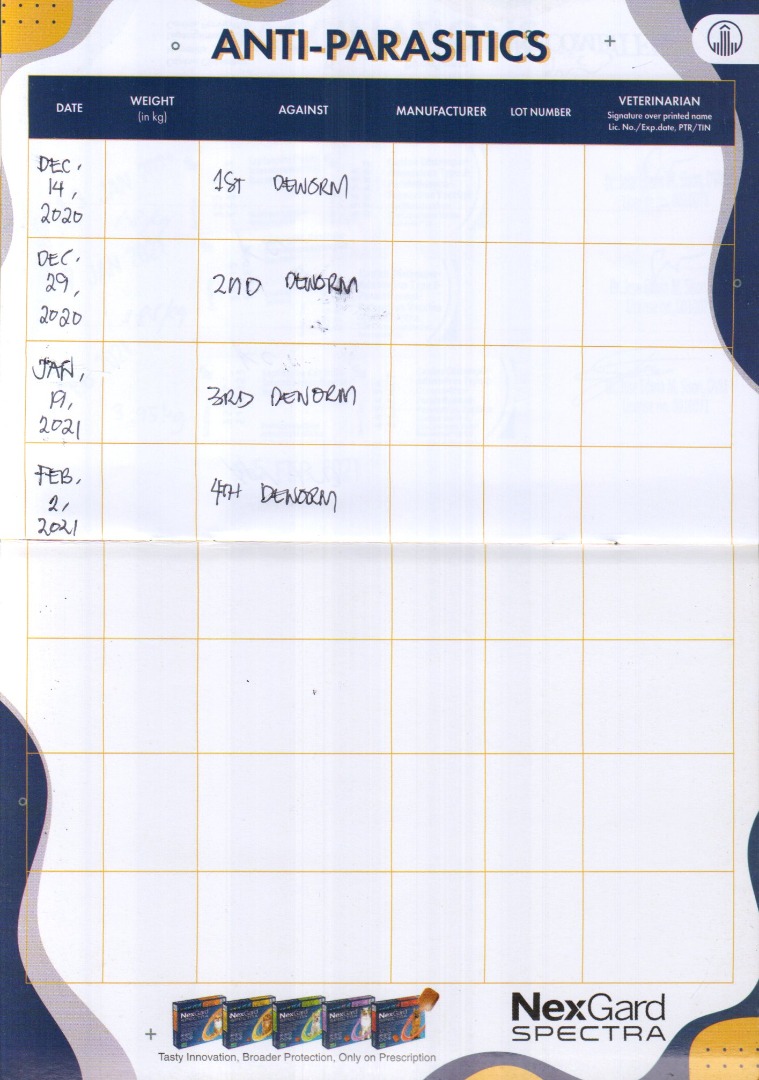 ANTI-PARASITICS
DATE WEIGHT (in kg) AGAINST MANUFACTURER LOT NUMBER VETERINARIAN
Signature over printed name
Lic. No./Exp.date, PTR/TIN
DEC. 14, 2020 1ST DEWORM
DEC. 29, 2020 2ND DEWORM
JAN, 19, 2021 3RD DEWORM
FEB. 2, 2021 4TH DEWORM
NexGard
SPECTRA
Tasty Innovation, Broader Protection, Only on Prescription